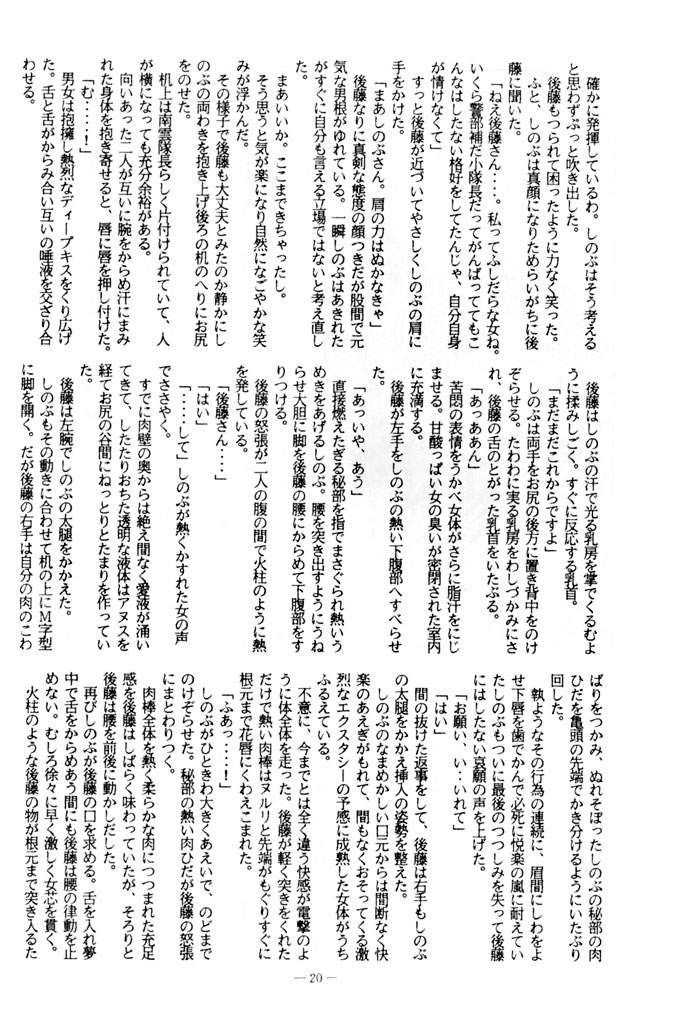 確かに発揮しているわ。しのぶはそう考える
と思わずぷっと吹き出した。
後藤もつられて困ったように力なく笑った。
ふと、しのぶは真顔になりためらいがちに後
藤に聞いた。
「ねえ後藤さん‥‥。私ってふしだらな女ね。
いくら警部補だ小隊長だってがんばっててもこ
んなはしたない格好をしてたんじゃ、自分自身
が情けなくて」
すっと後藤が近づいてやさしくしのぶの肩に
手をかけた。
「まあしのぶさん。肩の力はぬかなきゃ」
後藤なりに真剣な態度の顔つきだが股間で元
気な男根がゆれている。一瞬しのぶはあきれた
がすぐに自分も言える立場ではないと考え直し
た。
まあいいか。ここまできちゃったし。
そう思うと気が楽になり自然になごやかな笑
みが浮かんだ。
その様子で後藤も大丈夫とみたのか静かにし
のぶの両わきを抱き上げ後ろの机のへりにお尻
をのせた。
机上は南雲隊長らしく片付けられていて、人
が横になっても充分余裕がある。
向いあった二人が互いに腕をからめ汗にまみ
れた身体を抱き寄せると、唇に唇を押し付けた。
「む‥‥！」
男女は抱擁し熱烈なディープキスをくり広げ
た。舌と舌がからみ合い互いの唾液を交ざり合
わせる。
後藤はしのぶの汗で光る乳房を掌でくるむよ
うに揉みしごく。すぐに反応する乳首。
「まだまだこれからですよ」
しのぶは両手をお尻の後方に置き背中をのけ
ぞらせる。たわわに実る乳房をわしづかみにさ
れ、後藤の舌のとがった乳首をいたぶる。
「あっああん」
苦悶の表情をうかべ女体がさらに脂汗をにじ
ませる。甘酸っぱい女の臭いが密閉された室内
に充満する。
後藤が左手をしのぶの熱い下腹部へすべらせ
た。
「あっいや、あう」
直接燃えたぎる秘部を指でまさぐられ熱いう
めきをあげるしのぶ。腰を突き出すようにうね
らせ大胆に脚を後藤の腰にからめて下腹部をす
りつける。
後藤の怒張が二人の腹の間で火柱のように熱
を発している。
「後藤さん‥‥」
「はい」
「‥‥して」しのぶが熱くかすれた女の声
でささやく。
すでに肉壁の奥からは絶え間なく愛液が涌い
てきて、したたりおちた透明な液体はアヌスを
経てお尻の谷間にねっとりとたまりを作ってい
た。
後藤は左腕でしのぶの太腿をかかえた。
しのぶもその動きに合わせて机の上にＭ字型
に脚を開く。だが後藤の右手は自分の肉のこわ
ばりをつかみ、ぬれそぼったしのぶの秘部の肉
ひだを亀頭の先端でかき分けるようにいたぶり
回した。
執ようなその行為の連続に、眉間にしわをよ
せ下唇を歯でかんで必死に悦楽の嵐に耐えてい
たしのぶもついに最後のつつしみを失って後藤
にはしたない哀願の声を上げた。
「お願い、い‥いれて」
「はい」
間の抜けた返事をして、後藤は右手もしのぶ
の太腿をかかえ挿入の姿勢を整えた。
しのぶのなまめかしい口元からは間断なく快
楽のあえぎがもれて、間もなくおそってくる激
烈なエクスタシーの予感に成熟した女体がうち
ふるえている。
不意に、今までとは全く違う快感が電撃のよ
うに体全体を走った。後藤が軽く突きをくれた
だけで熱い肉棒はヌルリと先端がもぐりすぐに
根元まで花唇にくわえこまれた。
「ふあっ‥‥！」
しのぶがひときわ大きくあえいで、のどまで
のけぞらせた。秘部の熱い肉ひだが後藤の怒張
にまとわりつく。
肉棒全体を熱く柔らかな肉につつまれた充足
感を後藤はしばらく味わっていたが、そろりと
後藤は腰を前後に動かしだした。
再びしのぶが後藤の口を求める。舌を入れ夢
中で舌をからめあう間にも後藤は腰の律動を止
めない。むしろ徐々に早く激しく女芯を貫く。
火柱のような後藤の物が根元まで突き入るた
— 20 —